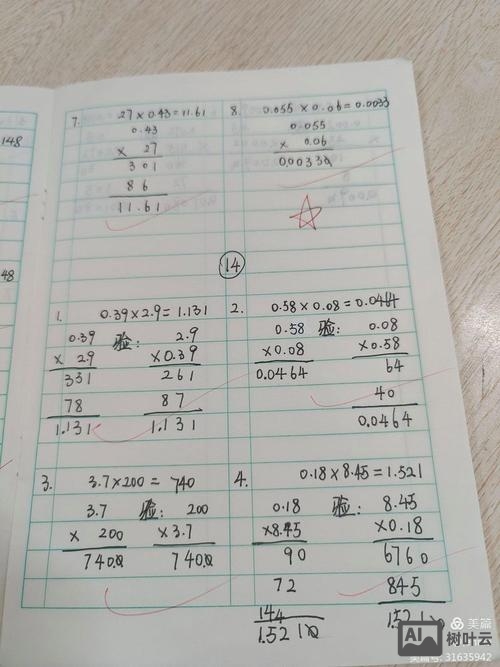 148
48
7. 27×0.43=11.61
0.43
× 27
301
86
11.61
8. 0.055×0.06=0.0033
0.055
× 0.06
0.00330
14
1. 0.39×2.9=1.131
0.39 验: 2.9
× 2.9 ×0.39
331 261
78 87
1.131 1.131
2. 0.58×0.08=0.0464
0.58 验: 0.08
×0.08 ×0.58
0.0464 64
40
0.0464
3. 3.7×200= 740
3.7 验: 200
× 200 ×3.7
740.0 740.0
4. 0.18×8.45=1.521
0.18 验: 8.45
×8.45 ×0.18
90 6760
72 845
144 1.5210
1.5210
美篇
AI 树叶云
美篇号: 31635942